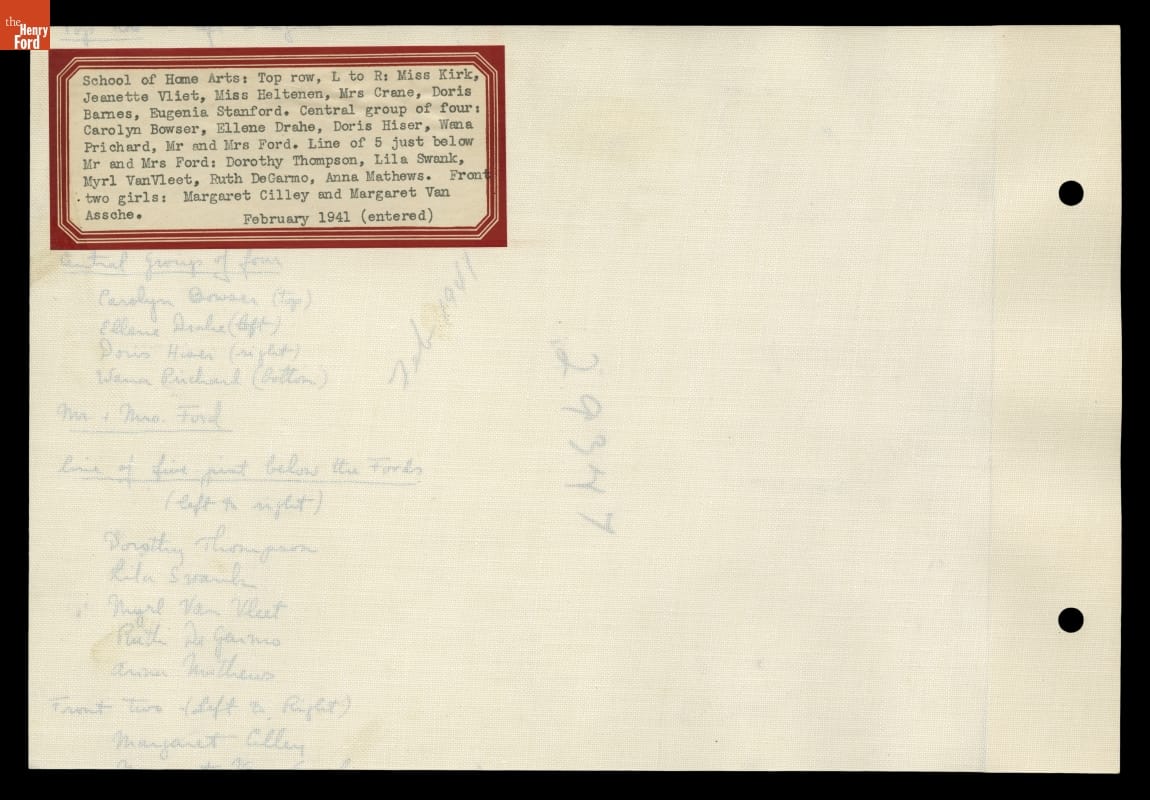 the
Henry
Ford
Top Row
School of Home Arts: Top row, L to R: Miss Kirk,
Jeanette Vliet, Miss Heltenen, Mrs Crane, Doris
Barnes, Eugenia Stanford. Central group of four:
Carolyn Bowser, Ellene Drahe, Doris Hiser, Wana
Prichard, Mr and Mrs Ford. Line of 5 just below
Mr and Mrs Ford: Dorothy Thompson, Lila Swank,
Myrl VanVleet, Ruth DeGarmo, Anna Mathews. Front
two girls: Margaret Cilley and Margaret Van
Assche. February 1941 (entered)
Central Group of four
Carolyn Bowser (top)
Ellene Drahe (left)
Doris Hiser (right)
Wana Prichard (bottom)
Feb 1941
Mr + Mrs. Ford
Line of five just below the Fords
(left to right)
Dorothy Thompson
Lila Swank
Myrl Van Vleet
Ruth De Garmo
Anna Mathews
Front two (Left to Right)
Margaret Cilley